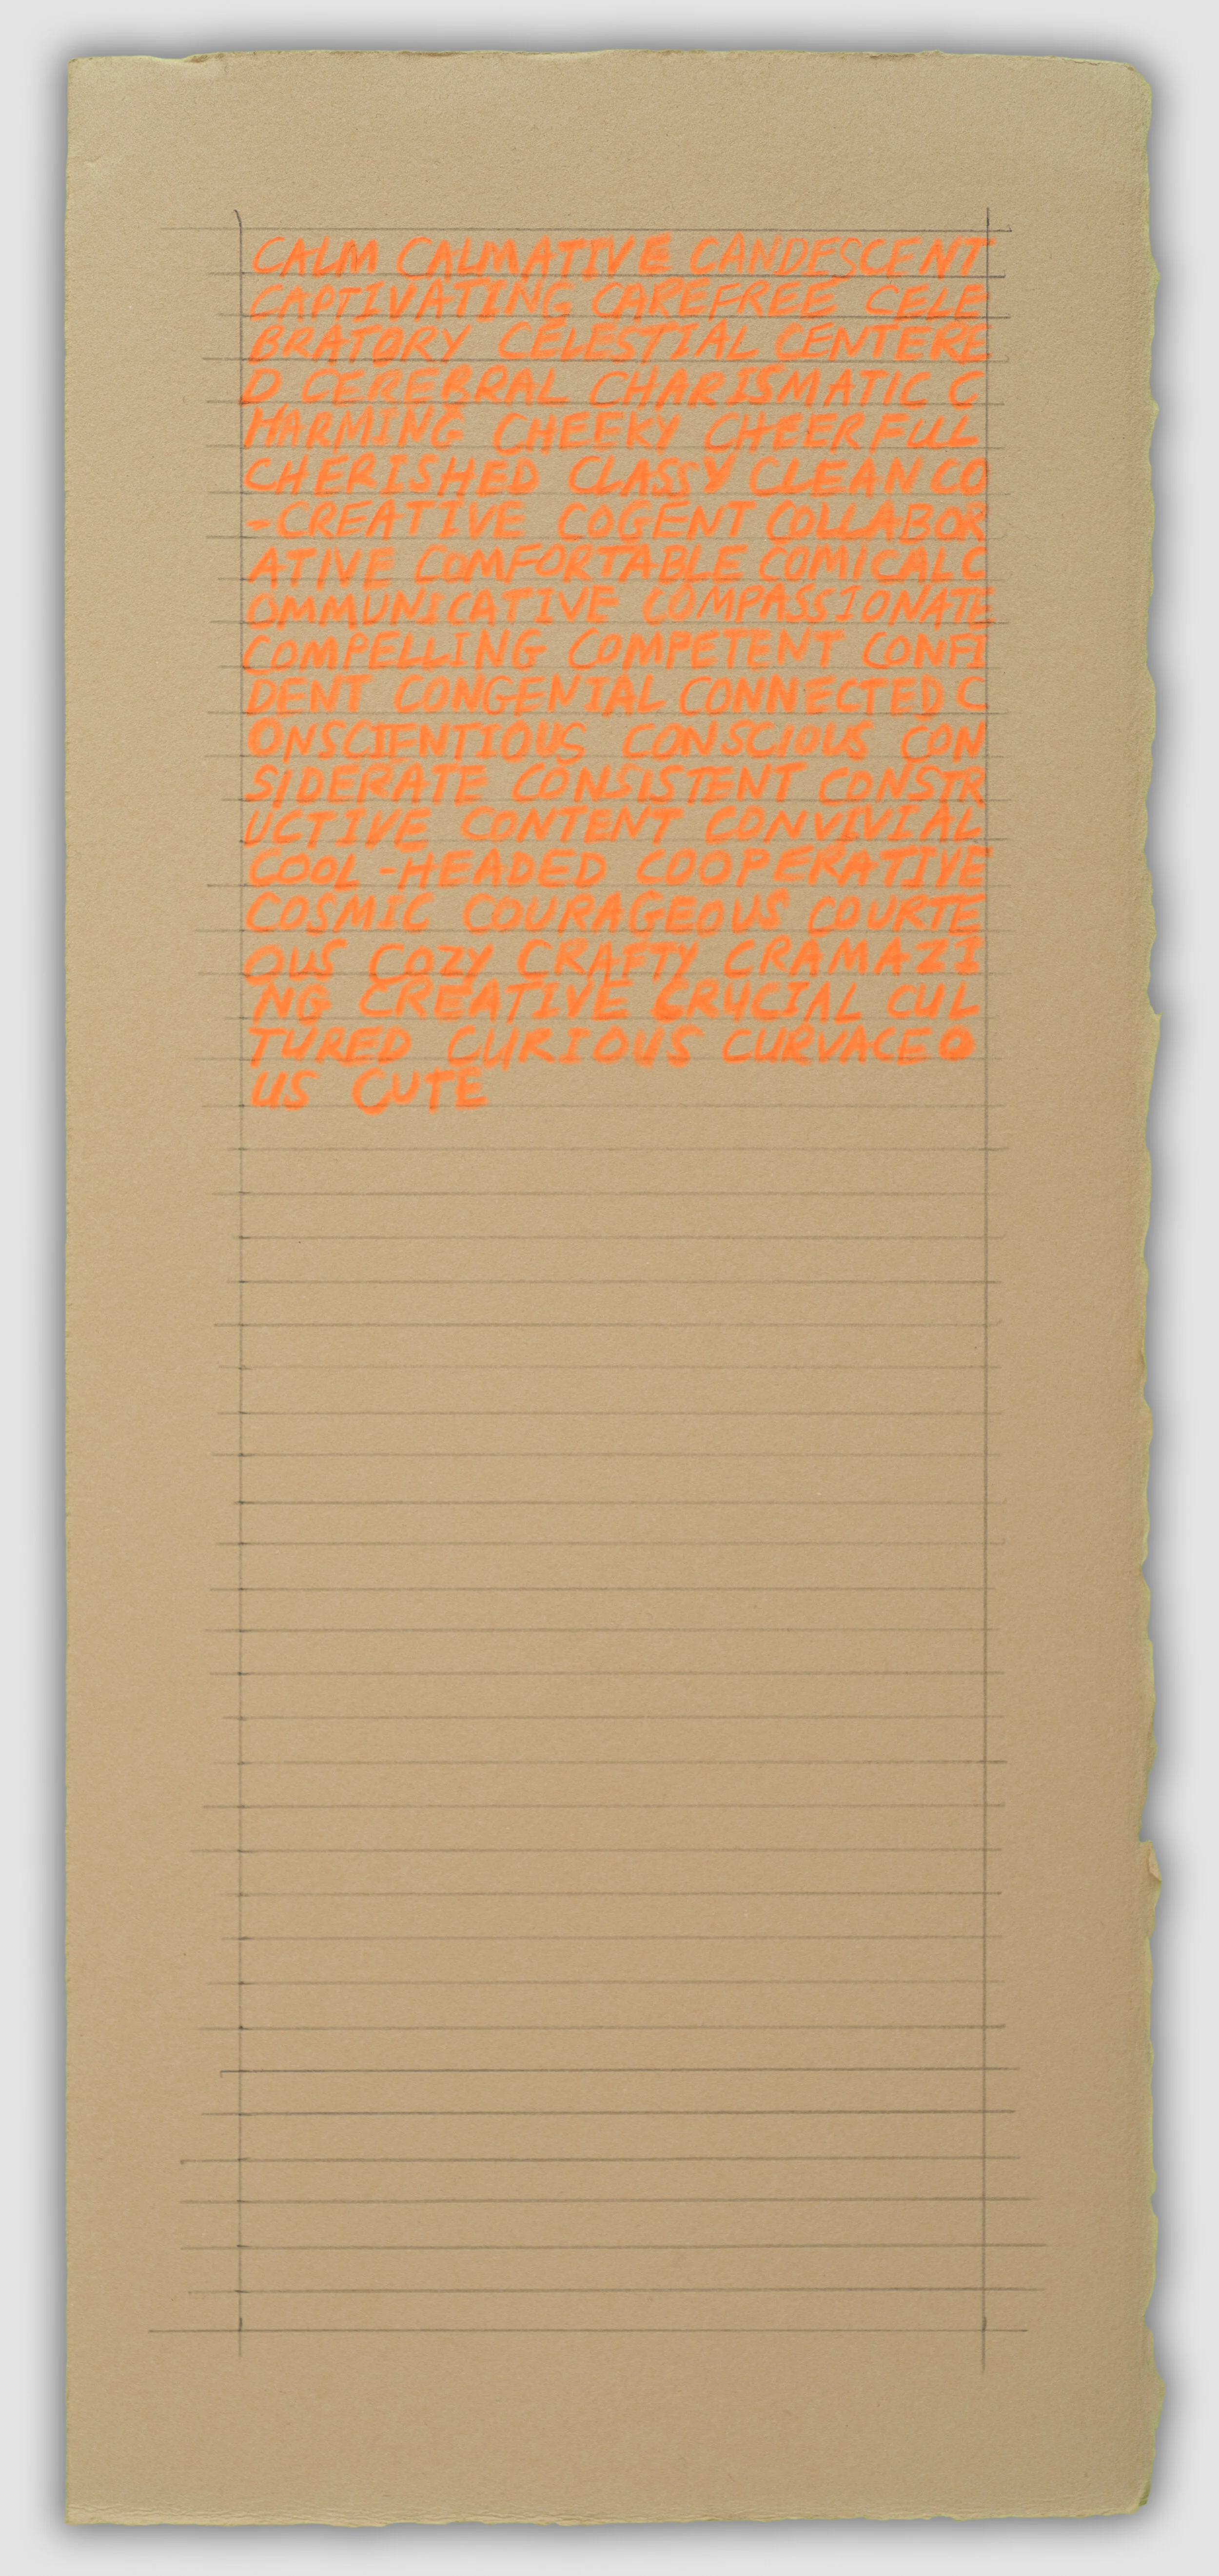 CALM CALMATIVE CANDESCENT
CAPTIVATING CAREFREE CELE
BRATORY CELESTIAL CENTERE
D CEREBRAL CHARISMATIC C
HARMING CHEEKY CHEERFUL
CHERISHED CLASSY CLEAN CO
-CREATIVE COGENT COLLABOR
ATIVE COMFORTABLE COMICAL C
OMMUNICATIVE COMPASSIONATE
COMPELLING COMPETENT CONFI
DENT CONGENIAL CONNECTED C
ONSCIENTIOUS CONSCIOUS CON
SIDERATE CONSISTENT CONSTR
UCTIVE CONTENT CONVIVIAL
COOL-HEADED COOPERATIVE
COSMIC COURAGEOUS COURTE
OUS COZY CRAFTY CRAMAZI
NG CREATIVE CRUCIAL CUL
TURED CURIOUS CURVACEO
US CUTE